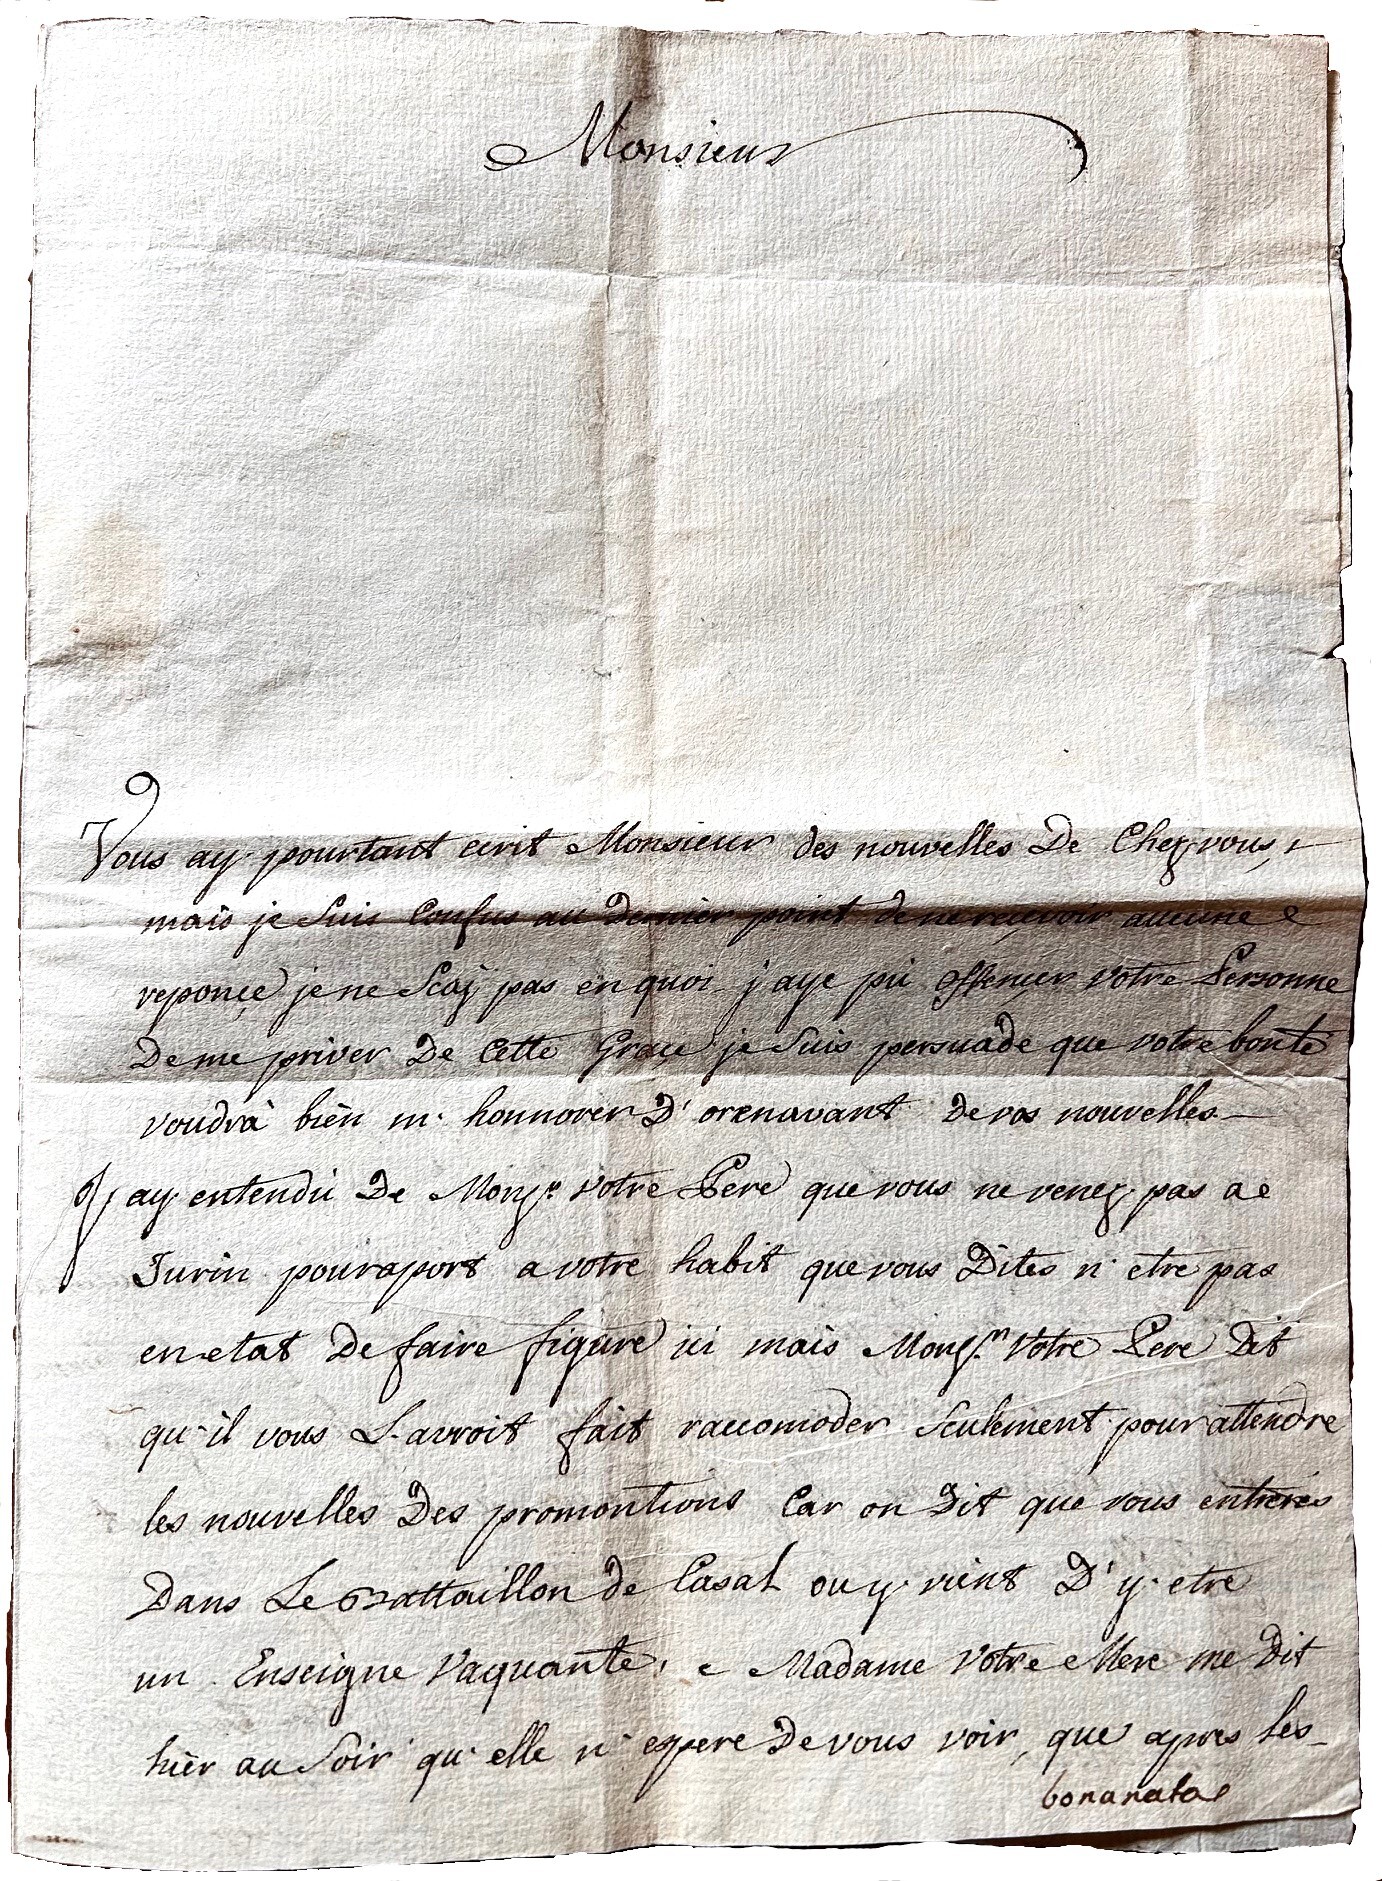 Monsieur
Vous ay pourtant ecrit Monsieur des nouvelles De Chez vous,
mais je suis Confus au Dernier point de ne reçevoir aucune
reponçe je ne Scaÿ pas en quoi j'aye pû offençer votre Personne
De me priver De Cette Graçe je suis persuade que votre bonté
voudrà bièn m'honnorer D'orenavant de vos nouvelles
J'ay entendù De Monsr votre Pere que vous ne venez pas a
Turin pour aport a votre habit que vous Dites n'etre pas
en etat De faire figure ici mais Monsr votre Pere Dit
qu'il vous L'avroit fait raccomoder seulement pour attendre
les nouvelles Des promontions Car on Dit que vous entreres
Dans Le Battaillon de Casal ou y vient D'y etre
un Enseigne Vaquante, e Madame Votre Mere me Dit
hièr au Soir qu'elle n'espere De vous voir, que apres les
bonanata